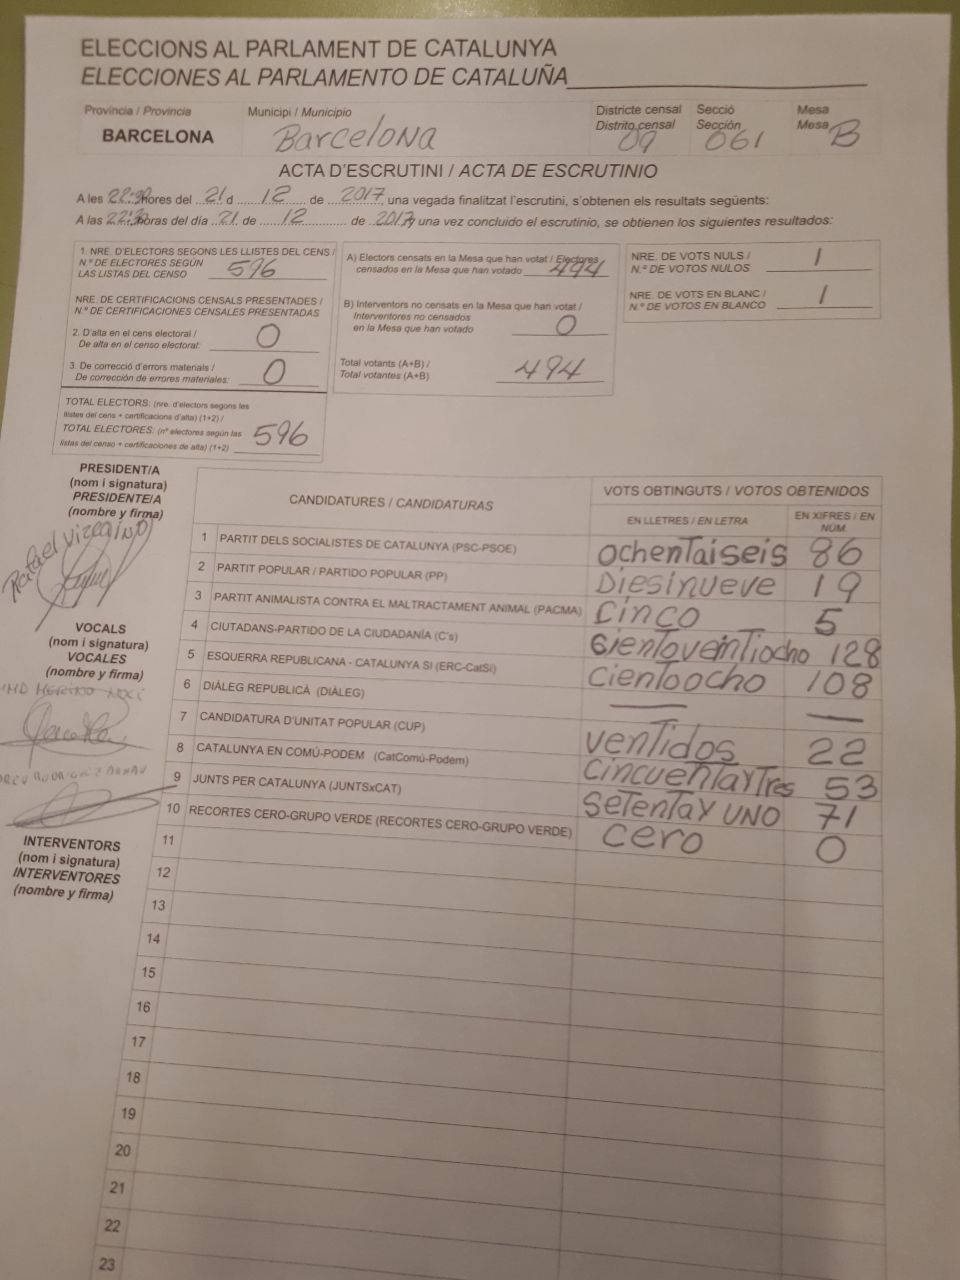 ELECCIONS AL PARLAMENT DE CATALUNYA
ELECCIONES AL PARLAMENTO DE CATALUÑA
Provincia / Provincia
BARCELONA
Municipi / Municipio
Barcelona
Districte censal
Distrito censal
09
Secció
Sección
061
Mesa
Mesa
B
ACTA D'ESCRUTINI / ACTA DE ESCRUTINIO
A les 22:30 hores del 21 d 12 de 2017, una vegada finalitzat l'escrutini, s'obtenen els resultats següents:
A las 22:30 horas del día 21 de 12 de 2017 una vez concluido el escrutinio, se obtienen los siguientes resultados:
1. NRE. D'ELECTORS SEGONS LES LLISTES DEL CENS /
N.º DE ELECTORES SEGÚN
LAS LISTAS DEL CENSO
596
NRE. DE CERTIFICACIONS CENSALS PRESENTADES /
N.º DE CERTIFICACIONES CENSALES PRESENTADAS
2. D'alta en el cens electoral /
De alta en el censo electoral:
0
3. De correcció d'errors materials /
De corrección de errores materiales:
0
TOTAL ELECTORS: (nre. d'electors segons les
llistes del cens + certificacions d'alta) (1+2) /
TOTAL ELECTORES: (nº electores según las
listas del censo + certificaciones de alta) (1+2)
596
A) Electors censats en la Mesa que han votat / Electores
censados en la Mesa que han votado
494
B) Interventors no censats en la Mesa que han votat /
Interventores no censados
en la Mesa que han votado
0
Total votants (A+B) /
Total votantes (A+B)
494
NRE. DE VOTS NULS /
N.º DE VOTOS NULOS
1
NRE. DE VOTS EN BLANC /
N.º DE VOTOS EN BLANCO
1
PRESIDENT/A
(nom i signatura)
PRESIDENTE/A
(nombre y firma)
Rafael Vizcaino
VOCALS
(nom i signatura)
VOCALES
(nombre y firma)
INTERVENTORS
(nom i signatura)
INTERVENTORES
(nombre y firma)
CANDIDATURES / CANDIDATURAS
VOTS OBTINGUTS / VOTOS OBTENIDOS
EN LLETRES / EN LETRA
EN XIFRES / EN NÚM.
1 PARTIT DELS SOCIALISTES DE CATALUNYA (PSC-PSOE) ochentaiseis 86
2 PARTIT POPULAR / PARTIDO POPULAR (PP) Diesinueve 19
3 PARTIT ANIMALISTA CONTRA EL MALTRACTAMENT ANIMAL (PACMA) Cinco 5
4 CIUTADANS-PARTIDO DE LA CIUDADANÍA (C's) Cientoveintiocho 128
5 ESQUERRA REPUBLICANA - CATALUNYA SI (ERC-CatSí) Cientoocho 108
6 DIÀLEG REPUBLICÀ (DIÀLEG) — —
7 CANDIDATURA D'UNITAT POPULAR (CUP) ventidos 22
8 CATALUNYA EN COMÚ-PODEM (CatComú-Podem) Cincuentaytres 53
9 JUNTS PER CATALUNYA (JUNTSxCAT) SetentaY UNO 71
10 RECORTES CERO-GRUPO VERDE (RECORTES CERO-GRUPO VERDE) Cero 0
11
12
13
14
15
16
17
18
19
20
21
22
23